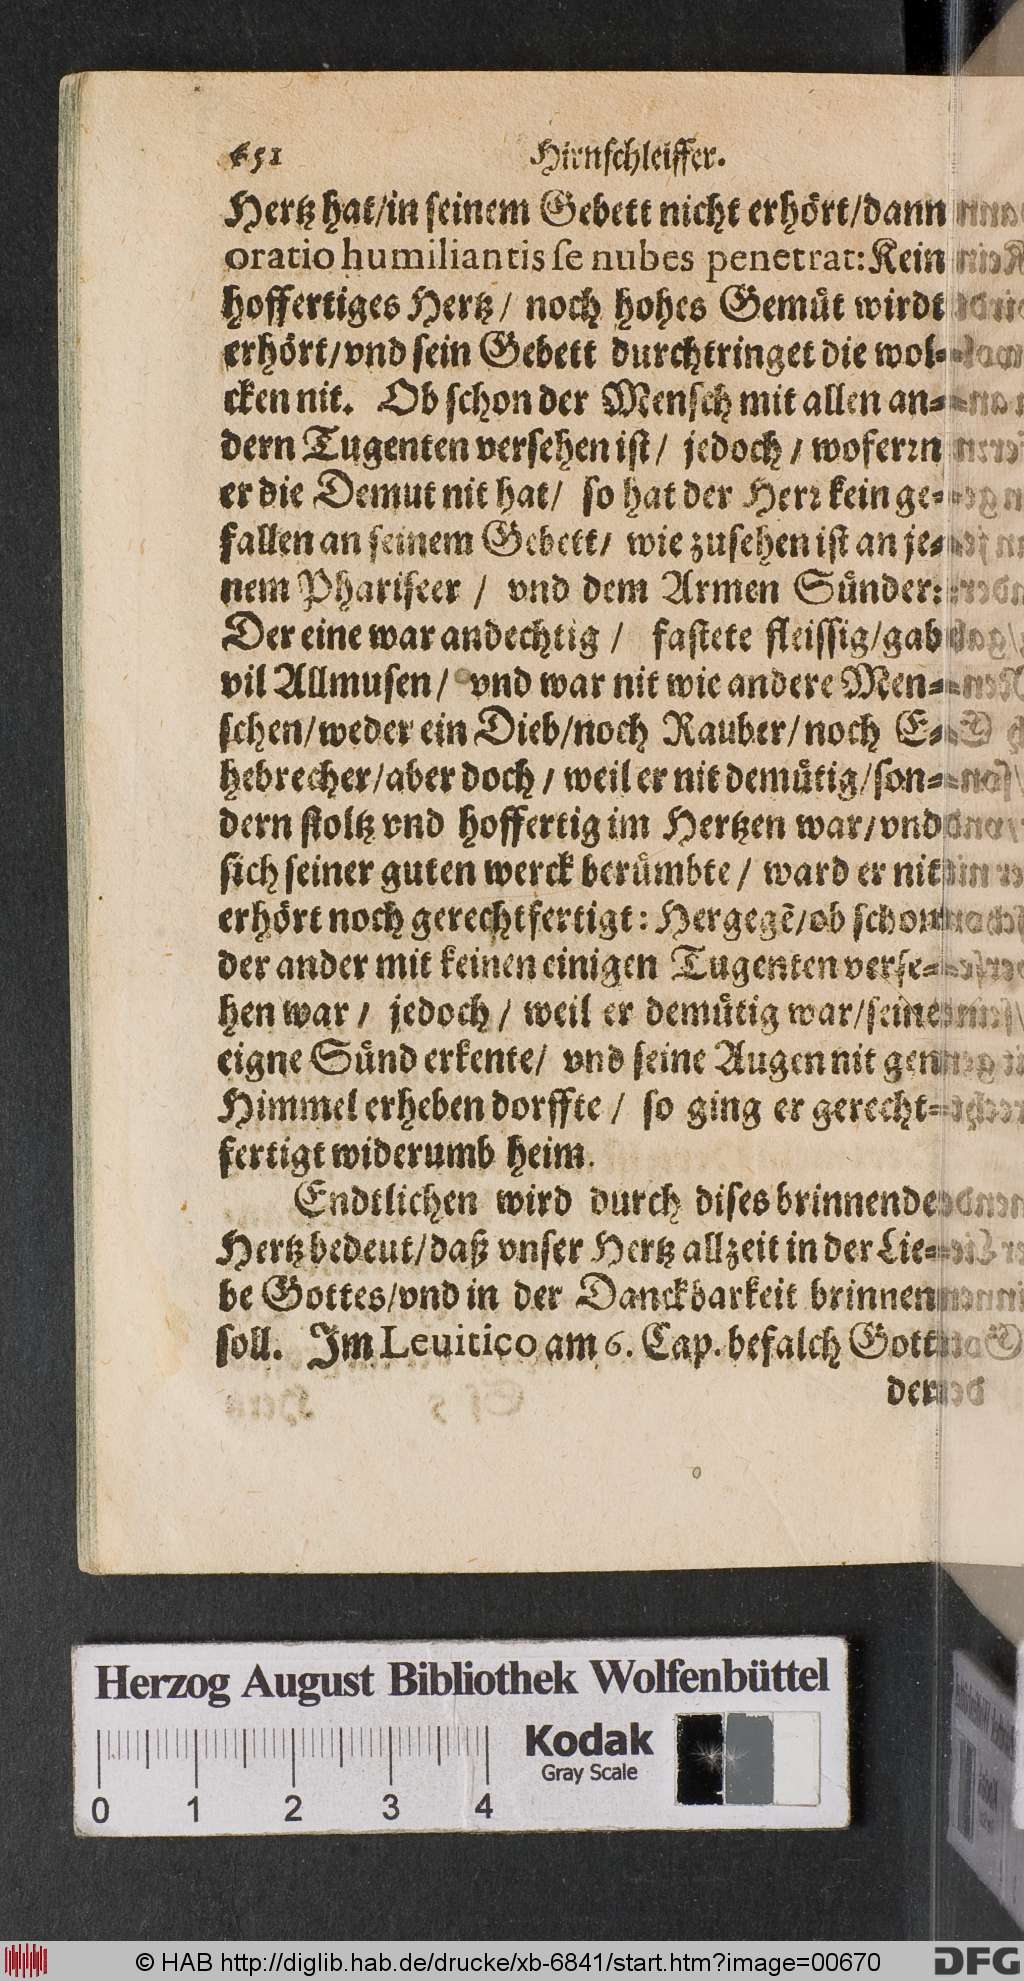 651 Hirnschleiffer.
Hertz hat/in seinem Gebett nicht erhört/dann
oratio humiliantis se nubes penetrat: Kein
hoffertiges Hertz/ noch hohes Gemüt wirdt
erhört/vnd sein Gebett durchtringet die wol-
cken nit. Ob schon der Mensch mit allen an-
dern Tugenten versehen ist/ jedoch/ woferrn
er die Demut nit hat/ so hat der Herr kein ge-
fallen an seinem Gebett/ wie zusehen ist an je-
nem Phariseer/ vnd dem Armen Sünder:
Der eine war andechtig/ fastete fleissig/gab
vil Allmusen/ vnd war nit wie andere Men-
schen/weder ein Dieb/noch Rauber/noch E-
hebrecher/aber doch/ weil er nit demütig/son-
dern stoltz vnd hoffertig im Hertzen war/vnd
sich seiner guten werck berümbte/ ward er nit
erhört noch gerechtfertigt: Hergegẽ/ob schon
der ander mit keinen einigen Tugenten verse-
hen war/ jedoch/ weil er demütig war/seine
eigne Sünd erkente/ vnd seine Augen nit gen
Himmel erheben dorffte/ so ging er gerecht-
fertigt widerumb heim.
Endtlichen wird durch dises brinnende
Hertz bedeut/daß vnser Hertz allzeit in der Lie-
be Gottes/vnd in der Danckbarkeit brinnen
soll. Im Leuitico am 6. Cap. befalch Gott
der
Herzog August Bibliothek Wolfenbüttel
Kodak
Gray Scale
0 1 2 3 4
© HAB http://diglib.hab.de/drucke/xb-6841/start.htm?image=00670
DFG